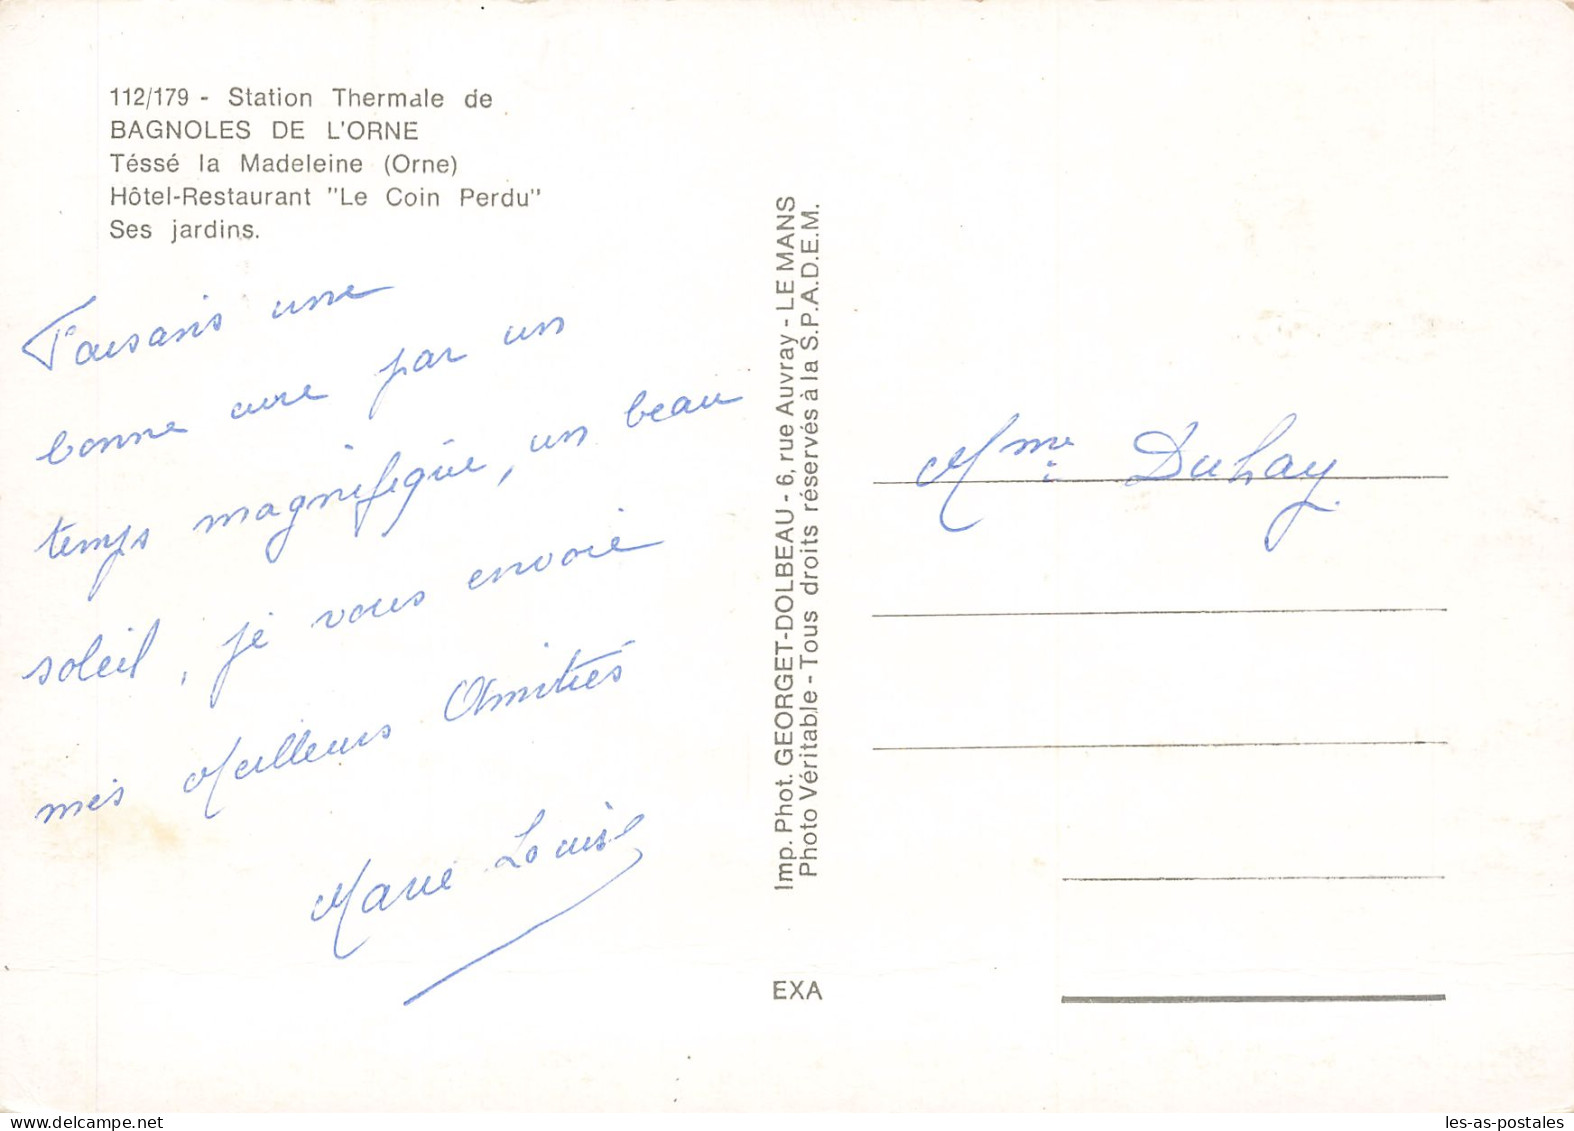 112/179 - Station Thermale de
BAGNOLES DE L'ORNE
Téssé la Madeleine (Orne)
Hôtel-Restaurant "Le Coin Perdu"
Ses jardins.
Faisans une
bonne cure par un
temps magnifique, un beau
soleil, je vous envoie
mes Meilleurs Amitiés
Marie Louise
Imp. Phot. GEORGET-DOLBEAU - 6, rue Auvray - LE MANS
Photo Véritable - Tous droits réservés à la S.P.A.D.E.M.
EXA
Mme Duhay
les-as-postales